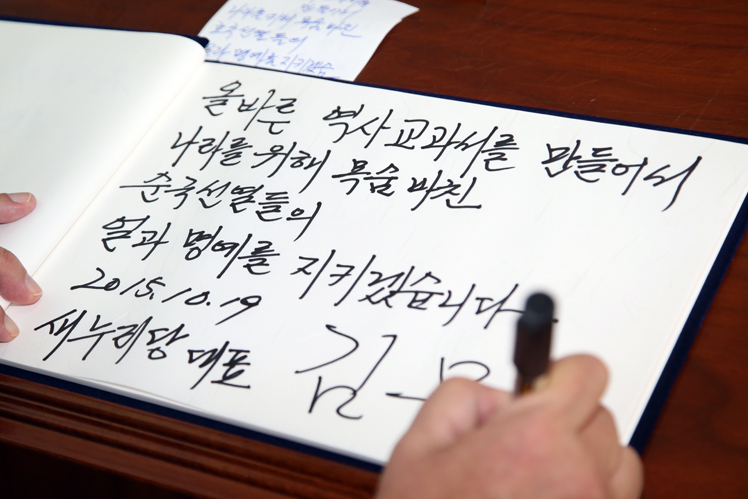 위해 목숨 바친
순국선열들의
얼과 명예를 지키겠습
올바른 역사교과서를 만들어서
나라를 위해 목숨 바친
순국선열들의
얼과 명예를 지키겠습니다
2015.10.19
새누리당 대표 김